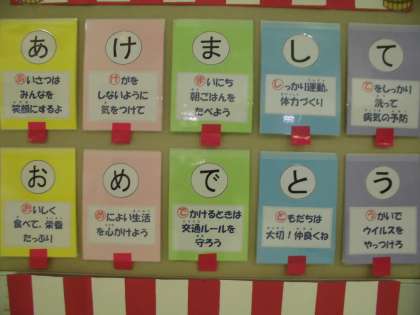 あ
け
ま
し
て
あいさつは
みんなを
笑顔にするよ
けがを
しないように
気をつけて
まいにち
朝ごはんを
たべよう
しっかり運動、
体力づくり
てをしっかり
洗って
病気の予防
お
め
で
と
う
おいしく
食べて、栄養
たっぷり
めによい生活
を心がけよう
でかけるときは
交通ルールを
守ろう
ともだちは
大切！仲良くね
うがいで
ウイルスを
やっつけろ